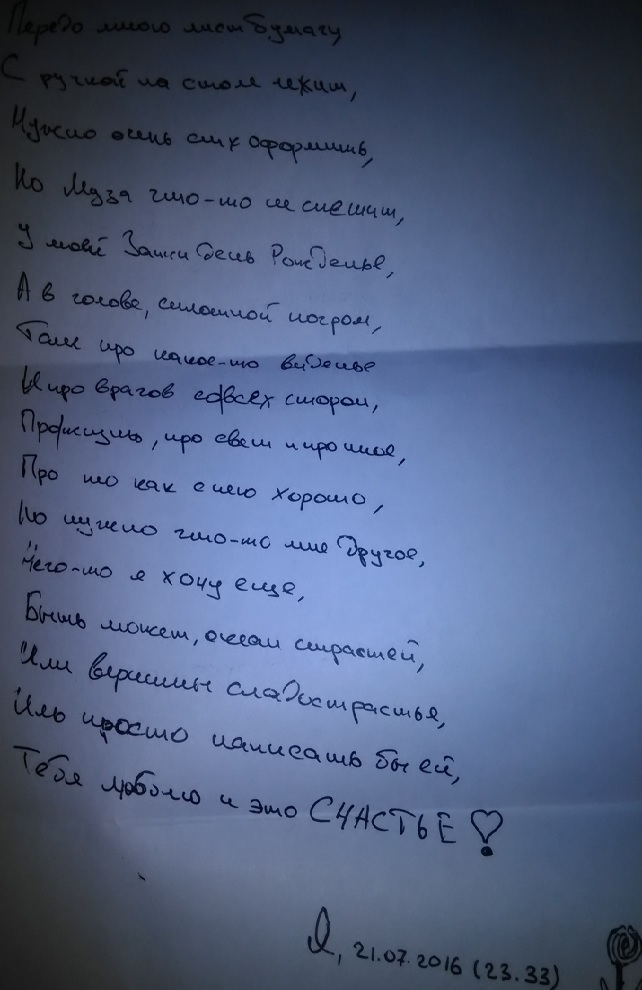 Передо мною лист бумагу
С ручкой на столе лежит,
Нужно очень стих оформить,
Но Муза что-то не спешит,
У моей Зайки День Рожденье,
А в голове, сплошной погром,
Там про какое-то виденье
И про врагов со всех сторон,
Про жизнь, про свет и про иное,
Про то как с нею хорошо,
Но нужно что-то мне другое,
Чего-то я хочу еще,
Быть может, океан страстей,
Или вершины сладострастья,
Иль просто написать бы ей,
Тебя люблю и это СЧАСТЬЕ
Я, 21.07.2016 (23.33)